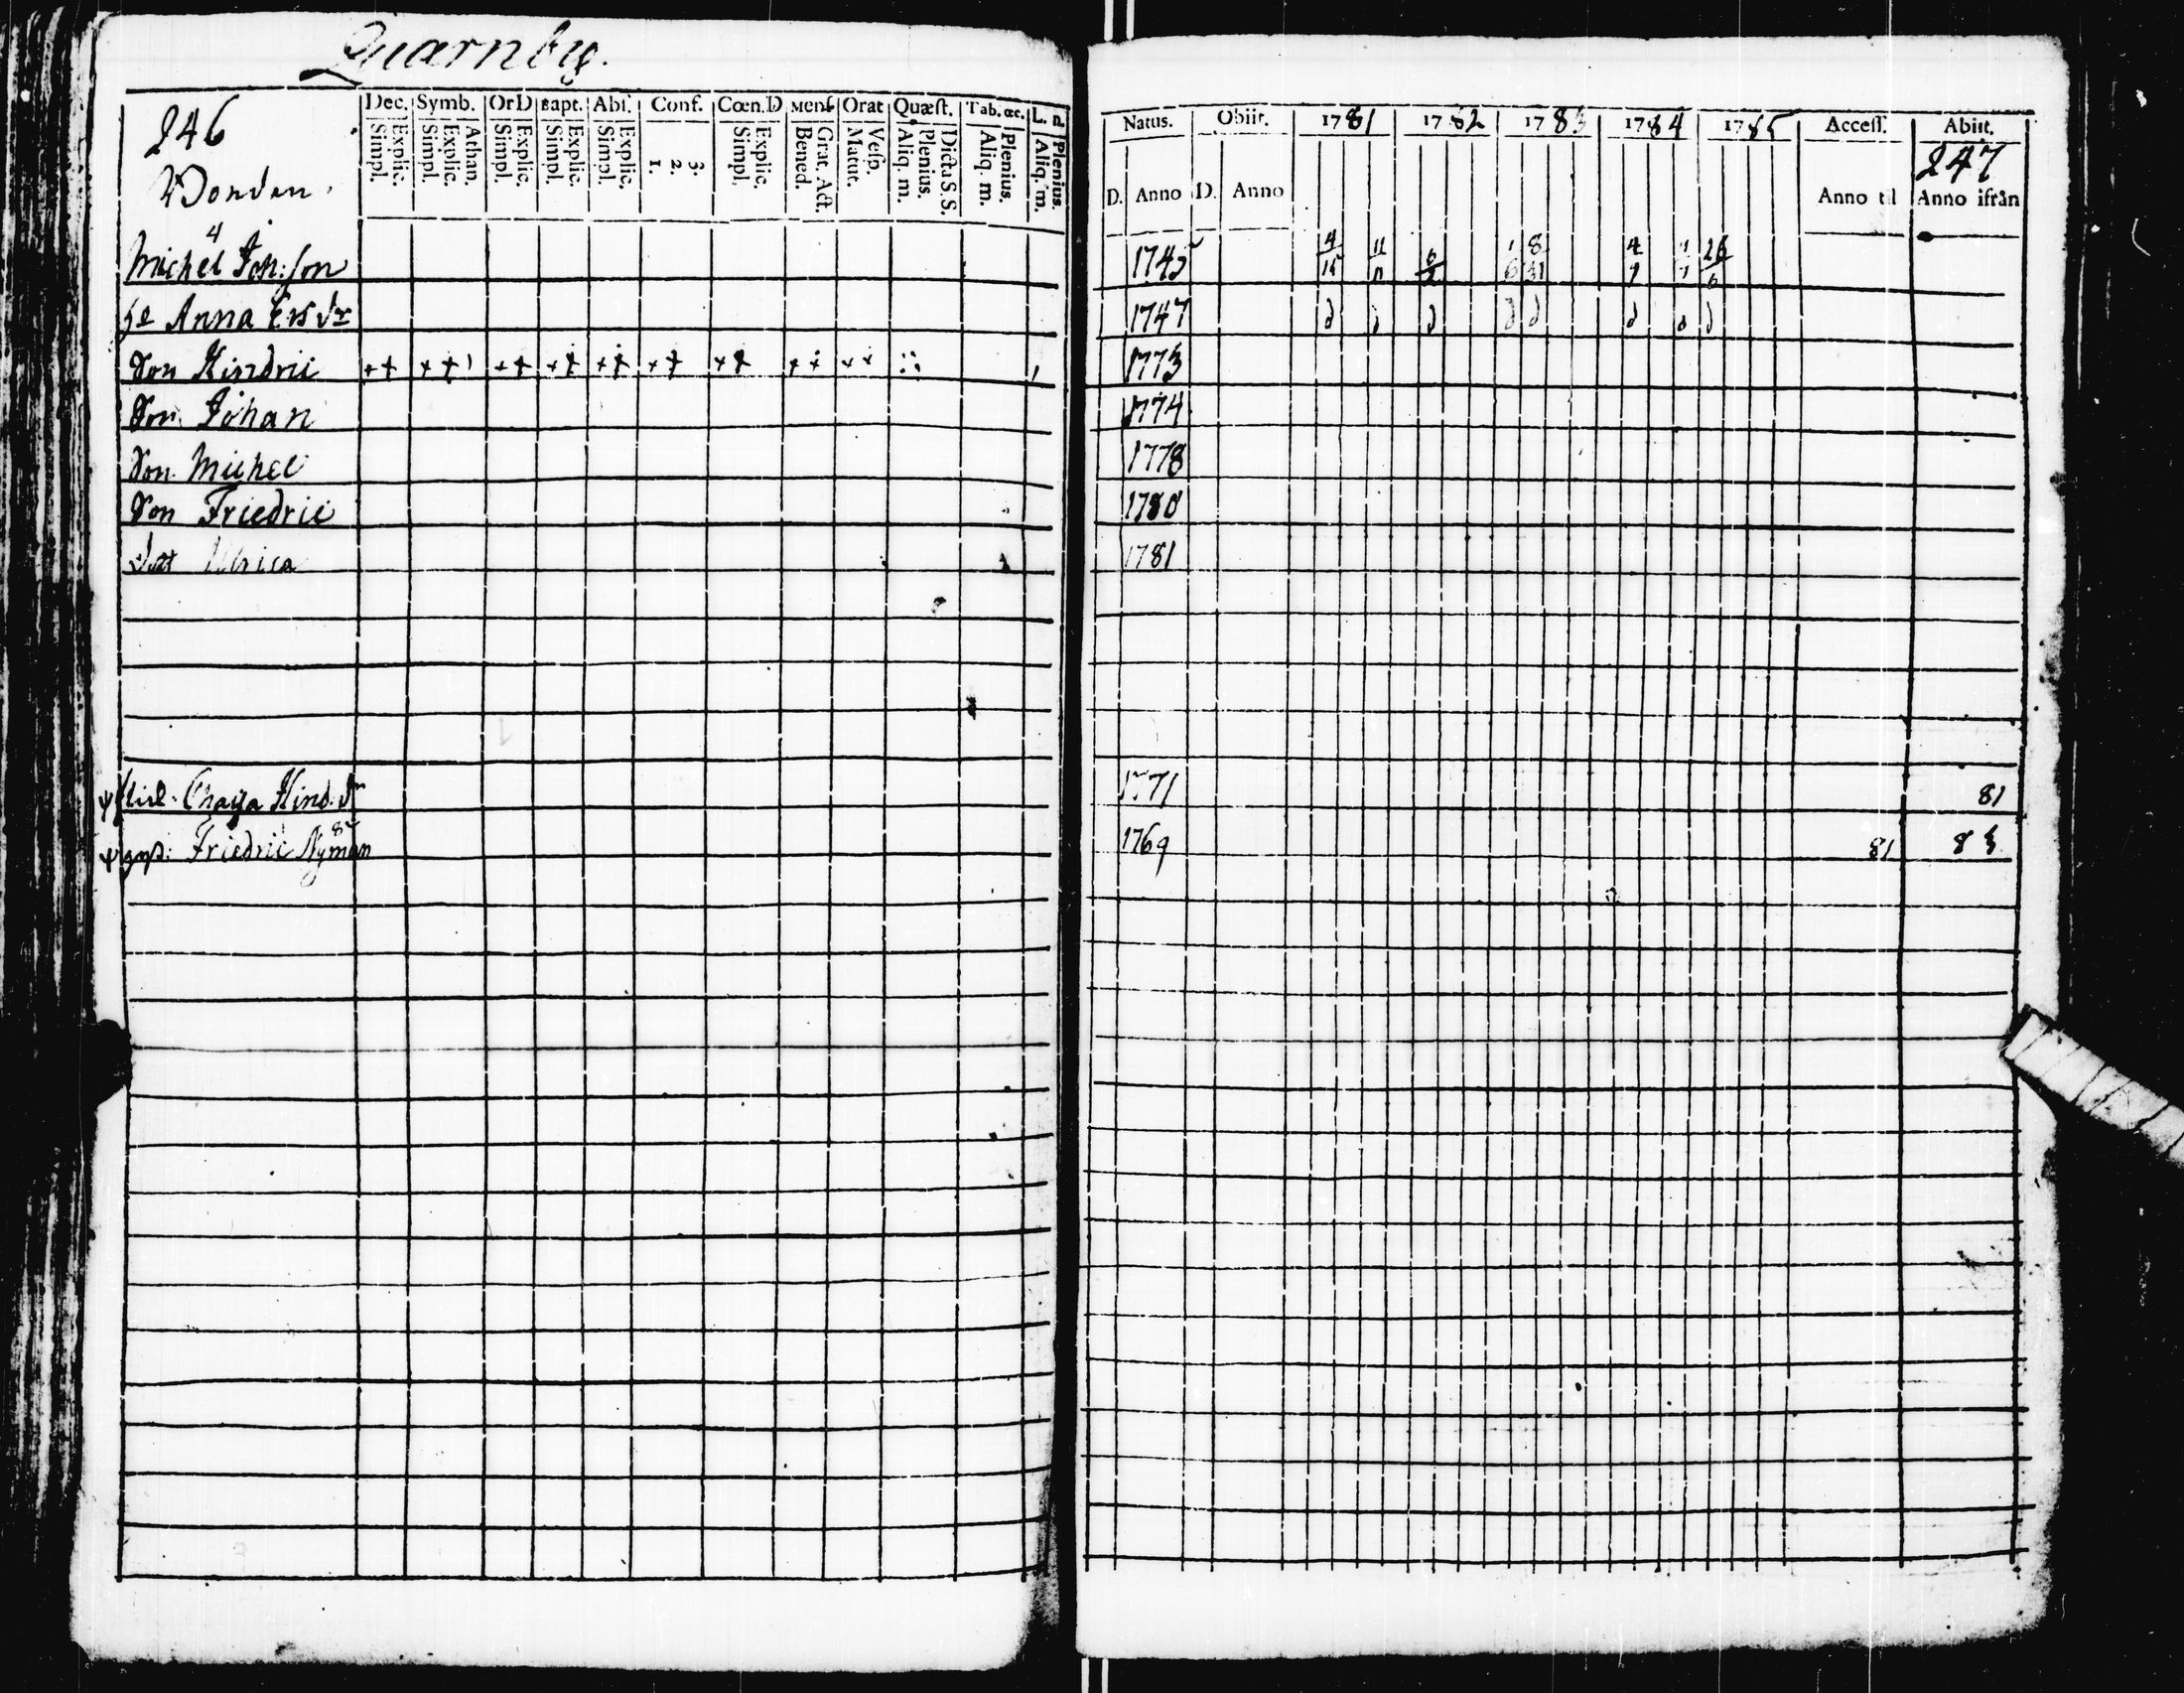 Quarnby.
246
Dec. Symb. OrD Bapt. Abſ. Conf. Cœn.D Menſ Orat Quæſt. Tab. œc. L. n
Explic. Simpl. Athan. Explic. Simpl. Explic. Simpl. Explic. Simpl. Explic. Simpl. 3. 2. 1. Explic. Simpl. Grat. Act. Bened. Veſp. Matut. Dicta S. S. Plenius. Aliq. m. Plenius. Aliq. m. Plenius. Aliq. m.
4
Michel Joh:son
Anna Ersdr
Son Hindric
Son Johan
Son Michel
Son Friedric
Ulrica
Hind. dr
Friedric Nyman
Natus. Obiit. 1781 1782 1783 1784 1785 Acceſſ. Abiit.
247
D. Anno D. Anno Anno til Anno ifrån
1745 4/15 11/11 6/2 8/31
1747
1773
1774
1778
1780
1781
1771 81
1769 81 83